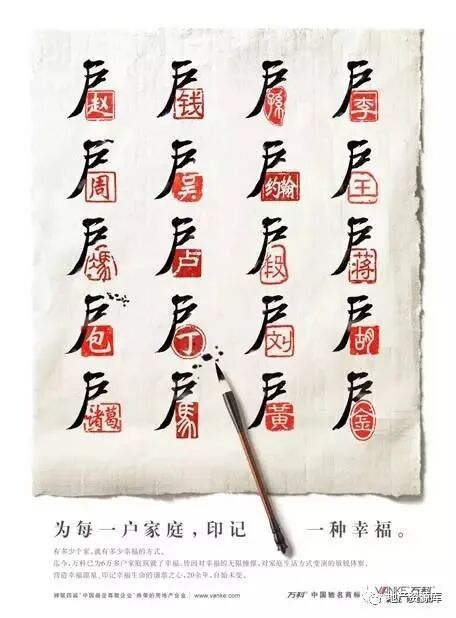 户赵 户钱 户孫 户李
户周 户吴 户约翰 户王
户 户卢 户段 户蒋
户包 户丁 户刘 户胡
户诸葛 户馬 户黃 户金
为每一户家庭，印记 一种幸福。
有多少个家，就有多少幸福的方式。
迄今，万科已为6万多户家庭筑就了幸福。皆因对幸福的无限憧憬，对家庭生活方式变演的敏锐体察，
营造幸福源泉、印记幸福生命的谦恭之心，20余年，自始未变。
蝉联四届“中国最受尊敬企业”殊荣的房地产企业 www.vanke.com 万科 中国驰名商标 VANKE 万科
地产资源库